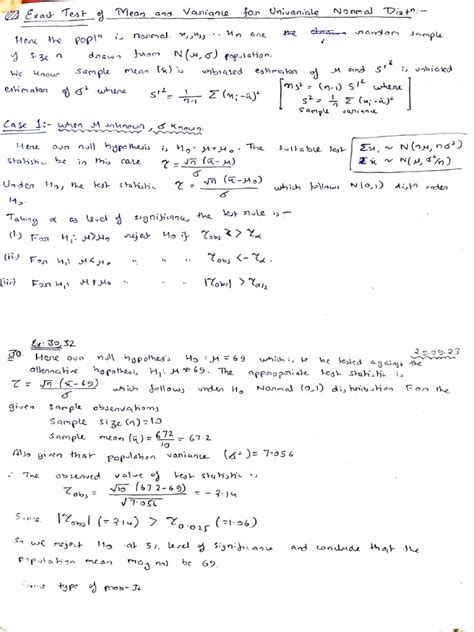 Exact Test of Mean and Variance for Univariate Normal Distn:-
Here the popln is normal. x₁, x₂, ... xn are the random sample
of size n drawn from N(μ, σ) population.
We know sample mean (x̄) is unbiased estimator of μ and S'² is unbiased
estimator of σ² where S'² = 1/(n-1) Σ (xᵢ-x̄)² [nS² = (n-1) S'² where
S² = 1/n Σ (xᵢ-x̄)²
sample variance]
Case 1:- when μ unknown, σ known.
Here our null hypothesis is H₀: μ=μ₀. The suitable test
statistic be in this case τ = √n (x̄-μ)/σ
Σxᵢ ~ N(nμ, nσ²)
Σx̄ ~ N(μ, σ²/n)
Under H₀, the test statistic τ = √n (x̄-μ₀)/σ which follows N(0,1) distn under
H₀.
Taking α as level of significance, the test rule is —
(i) For H₁: μ>μ₀ reject H₀ if τobs > τα
(ii) For H₁: μ<μ₀ " " " τobs < -τα.
(iii) For H₁: μ≠μ₀ " " " |τobs| > τα/2
Ex: 30, 32
20.09.23
30. Here our null hypothesis H₀: μ=69 which is to be tested against the
alternative hypothesis H₁: μ≠69. The appropriate test statistic is
τ = √n (x̄-69)/σ which follows under H₀ Normal (0,1) distribution For the
given sample observations
Sample size (n) = 10
Sample mean (x̄) = 672/10 = 67.2
Also given that population variance (σ²) = 7.056
∴ The observed value of test statistic is
τobs = √10 (67.2-69)/√7.056 = -2.14
Since |τobs| (=2.14) > τ0.025 (=1.96)
So we reject H₀ at 5% level of significance and conclude that the
population mean may not be 69.
Same type of prob-32